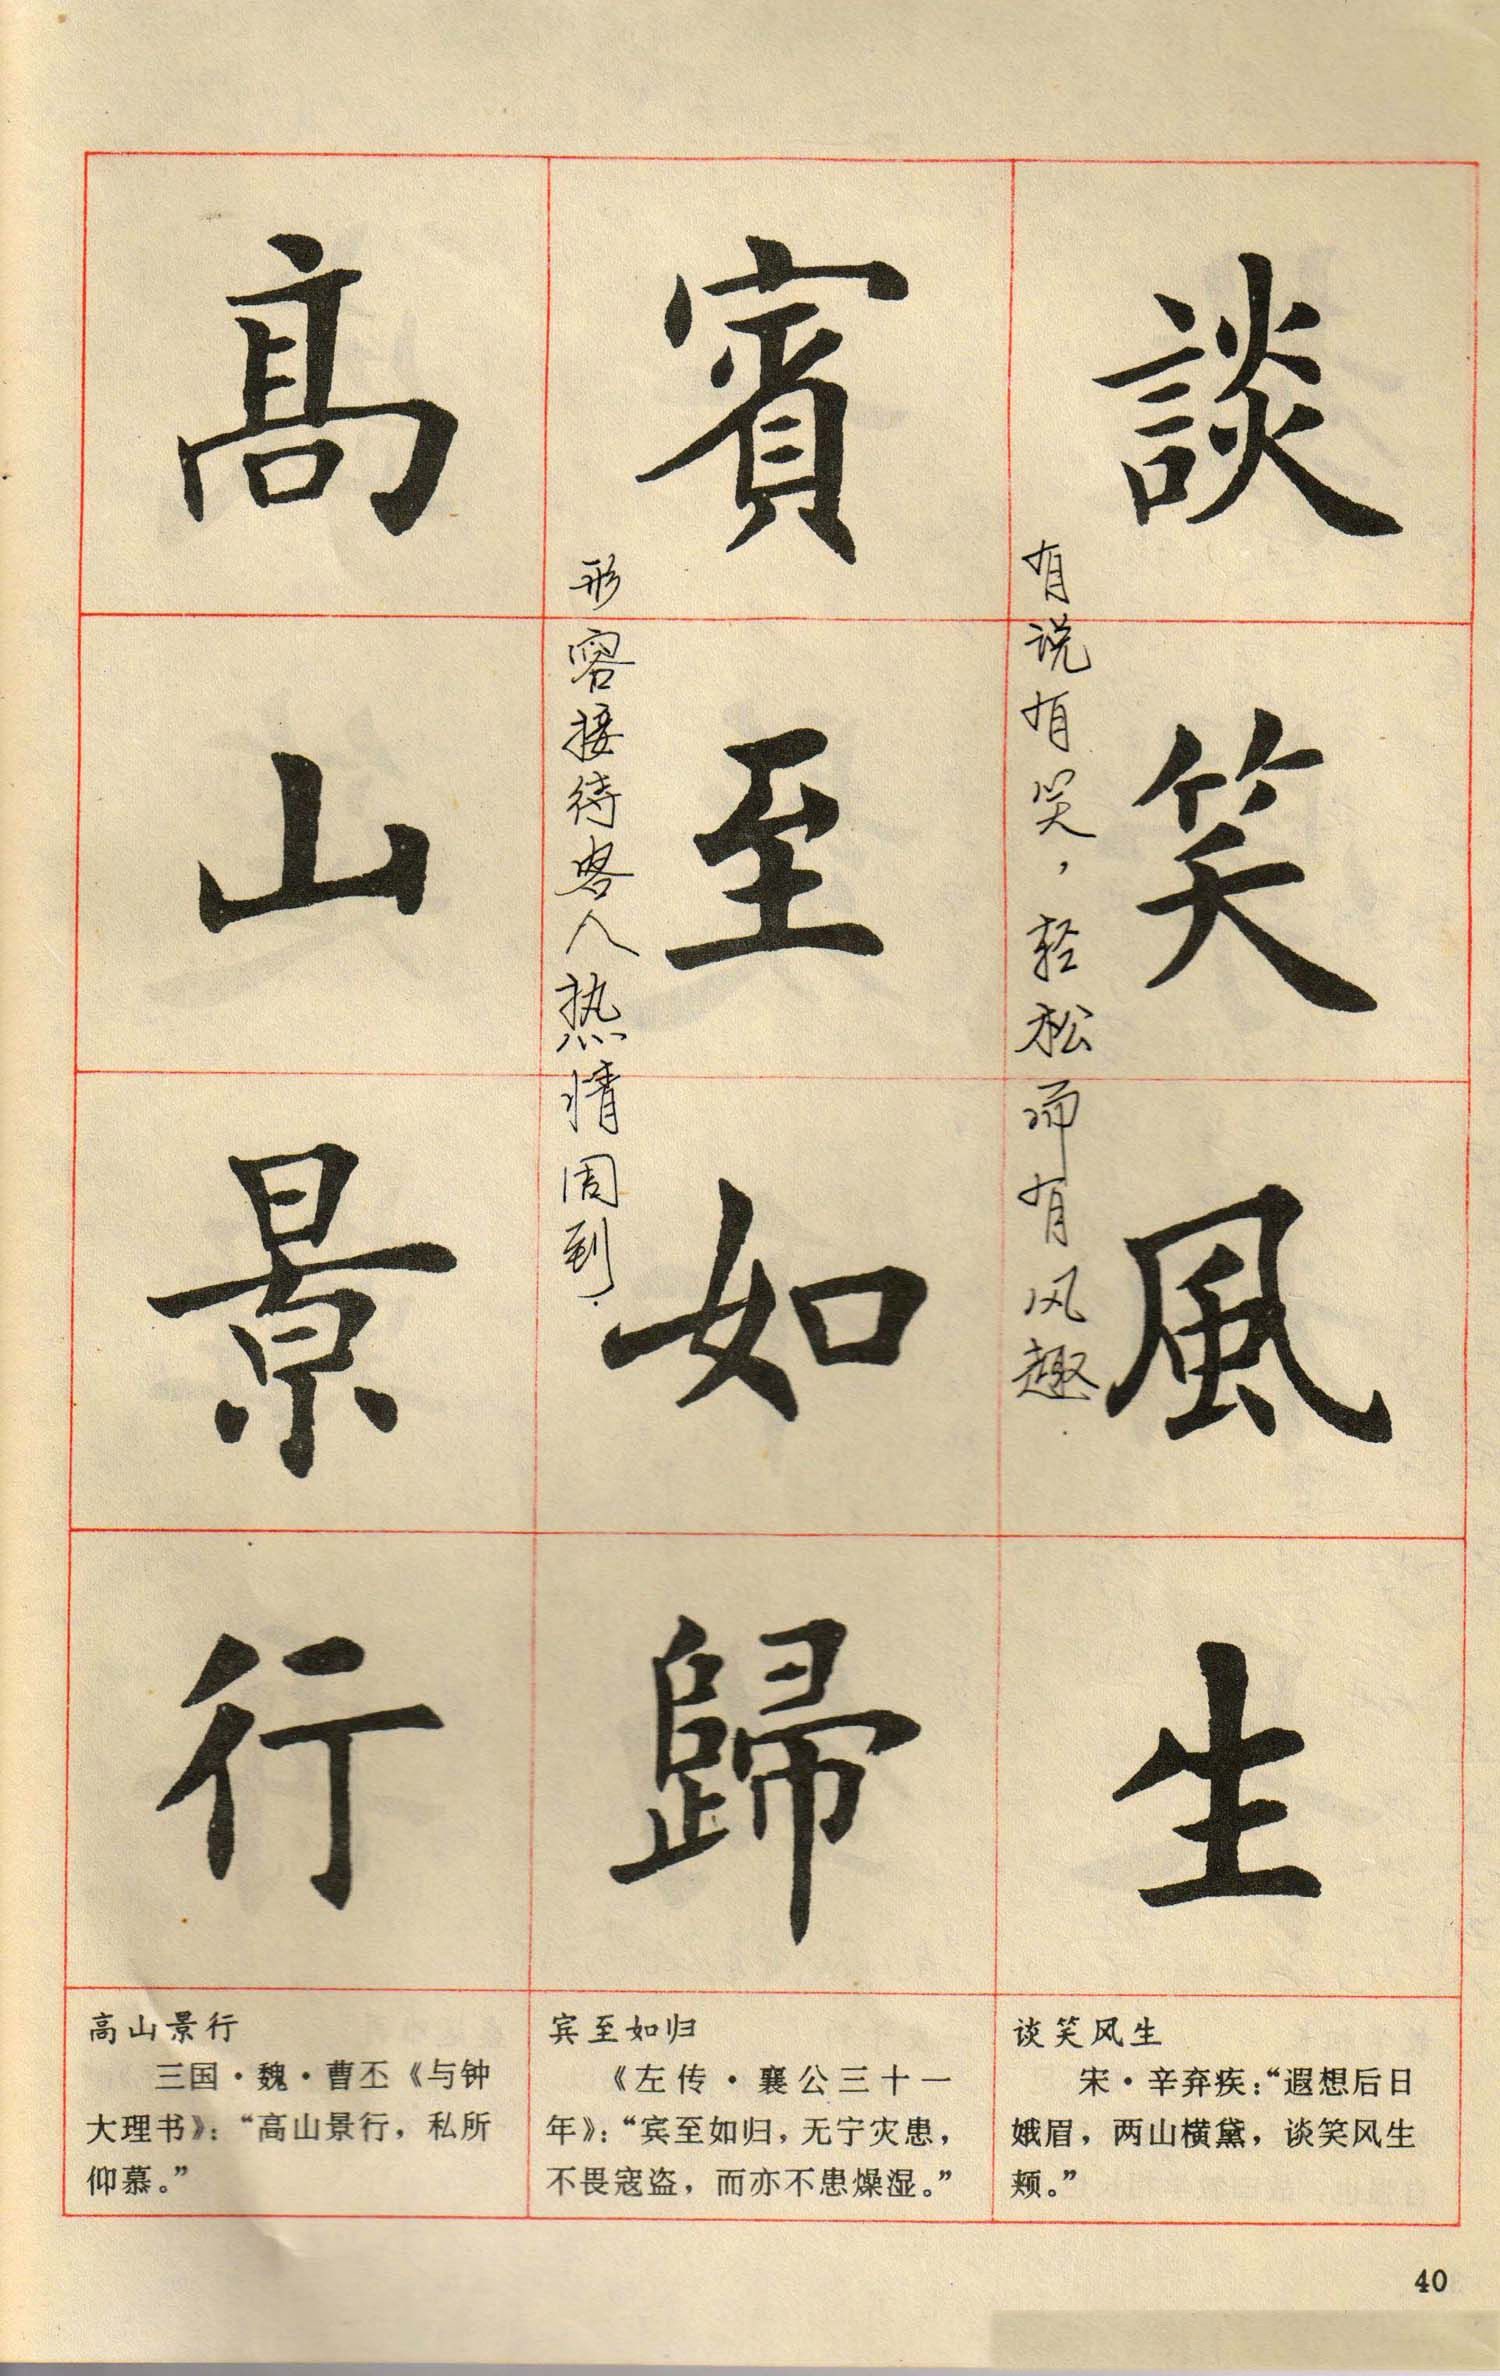 談笑風生
有说有笑，轻松而有风趣.
賓至如歸
形容接待客人热情周到.
高山景行
谈笑风生
宋·辛弃疾：“遐想后日
娥眉，两山横黛，谈笑风生
颊。”
宾至如归
《左传·襄公三十一
年》：“宾至如归，无宁灾患，
不畏寇盗，而亦不患燥湿。”
高山景行
三国·魏·曹丕《与钟
大理书》：“高山景行，私所
仰慕。”
40